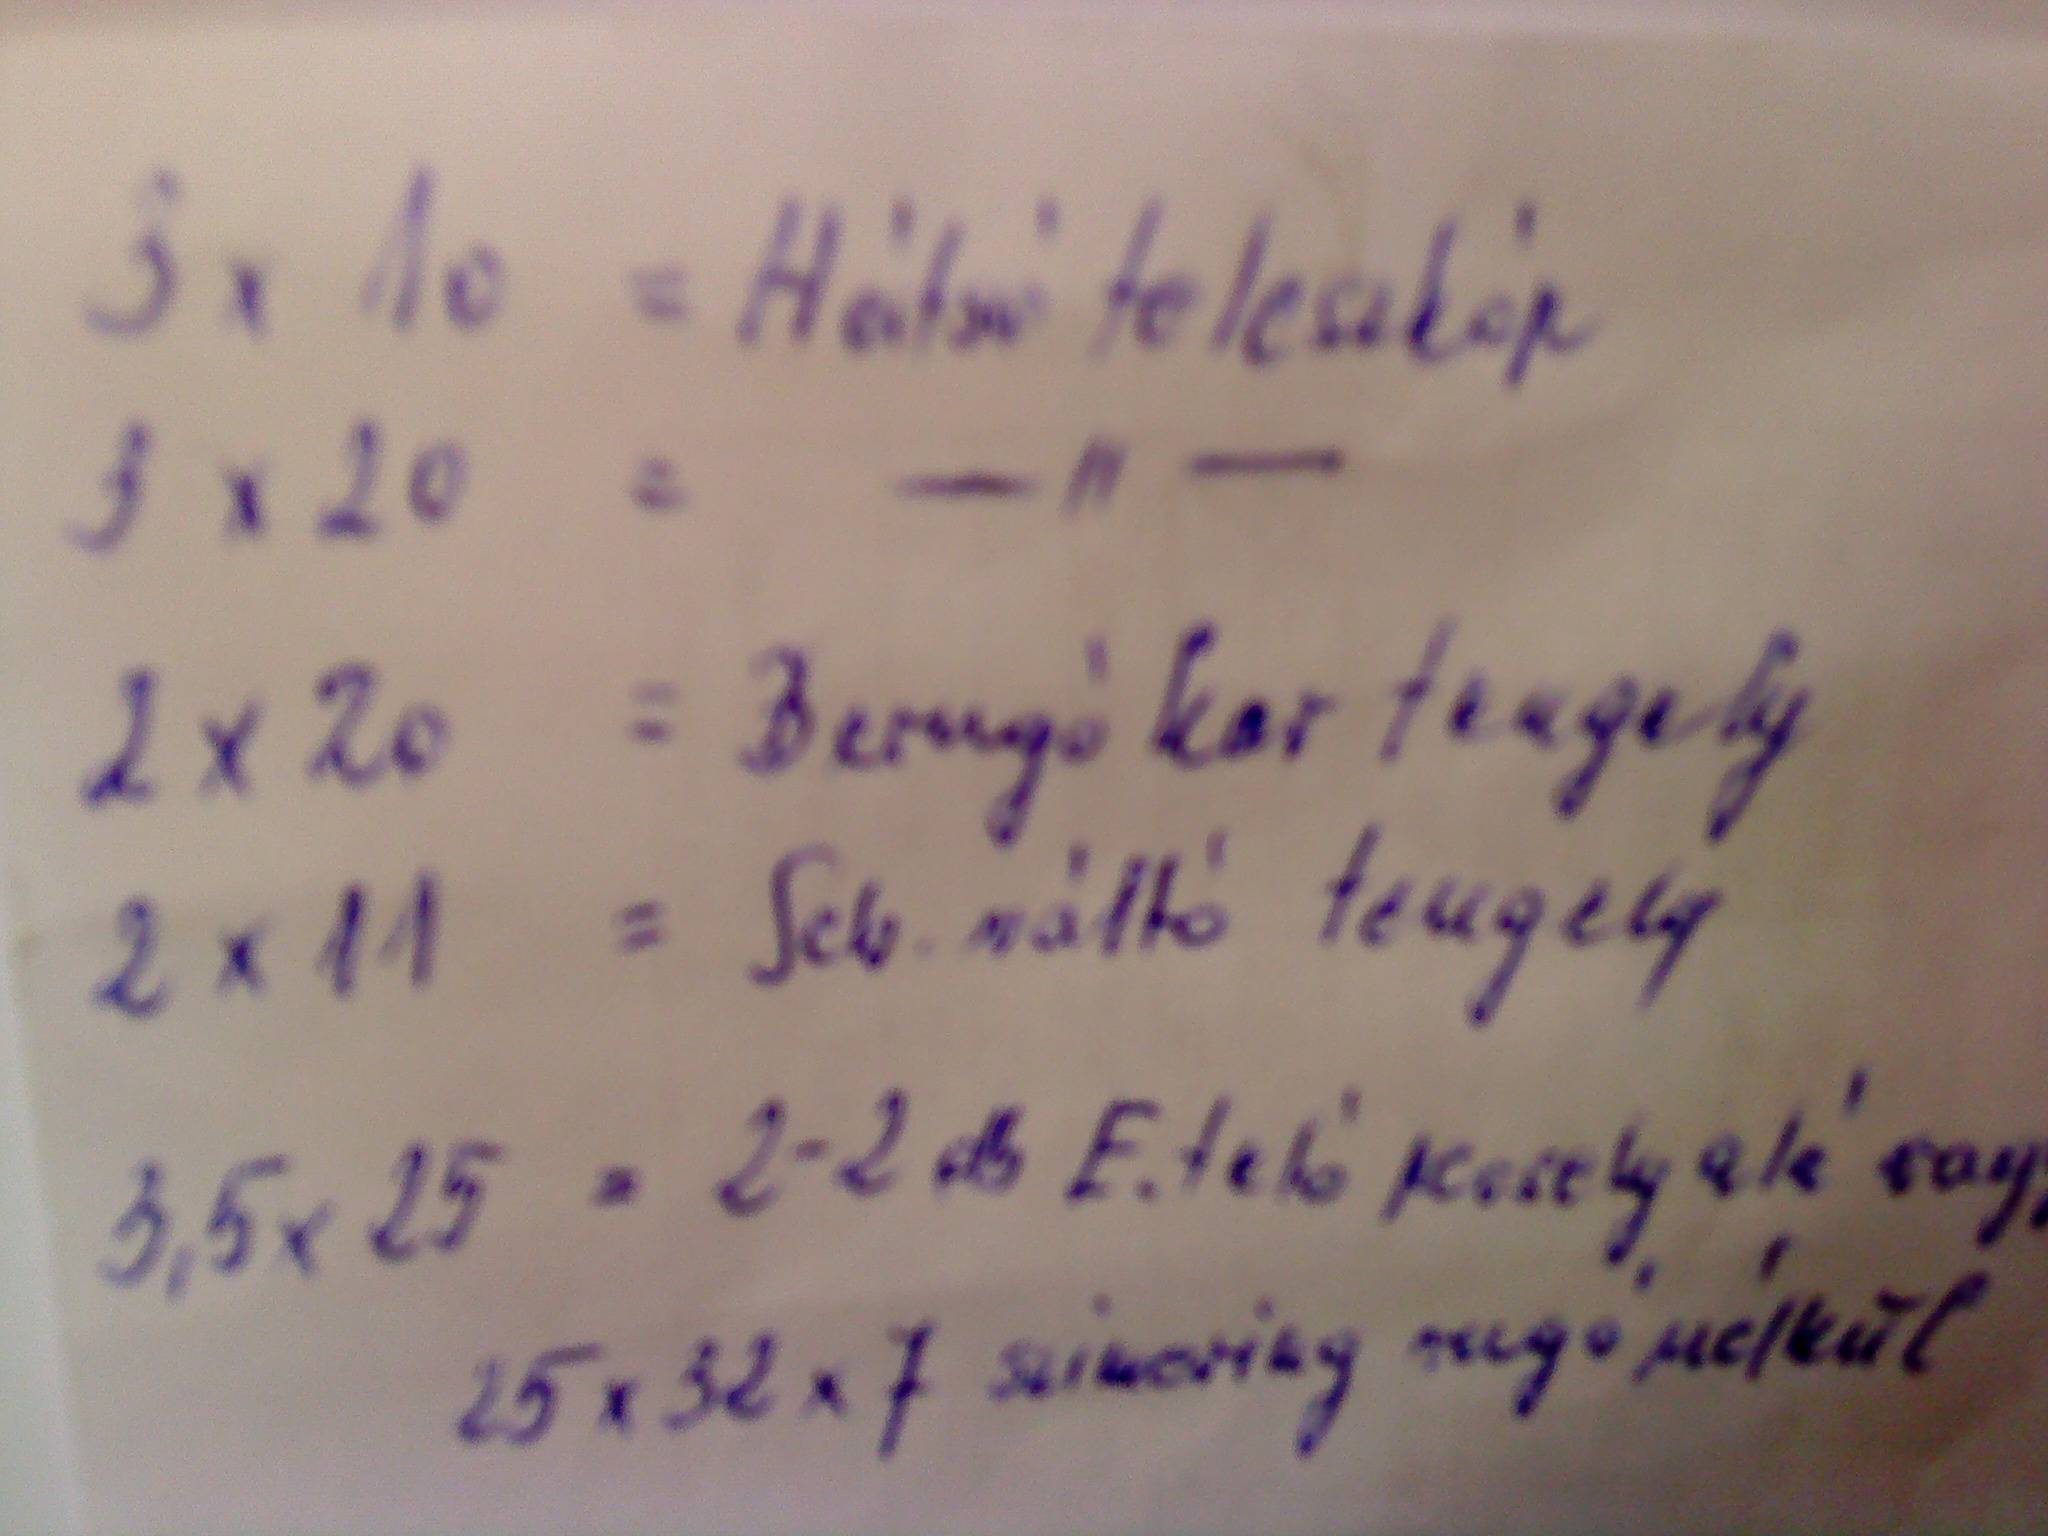 3 x 10 = Hátsó teleszkóp
3 x 20 = — " —
2 x 20 = Berugó kar tengely
2 x 11 = Seb. váltó tengely
3,5 x 25 = 2-2 db E. teló persely alá vagy
25 x 32 x 7 szimering rugó nélkül